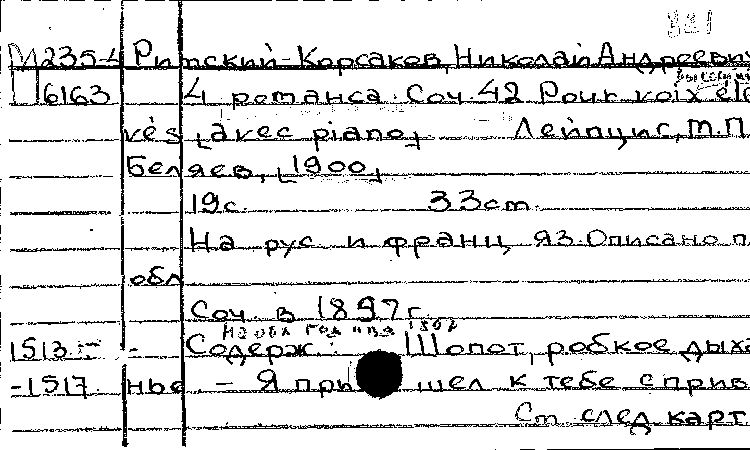 331
М 235-4 Римский-Корсаков, Николай Андреевич
П 6163 4 романса. Соч. 42 Pour voix éle
vés [avec piano] Лейпциг, М.П.
Беляев, [1900]
19с. 33см.
На рус и франц яз. Описано п
обл
Соч. в 1897г.
На обл год изд 1897
1513 - Содерж.: Шопот, робкое дыха
-1517 нье. - Я пришел к тебе с прив
См след карт